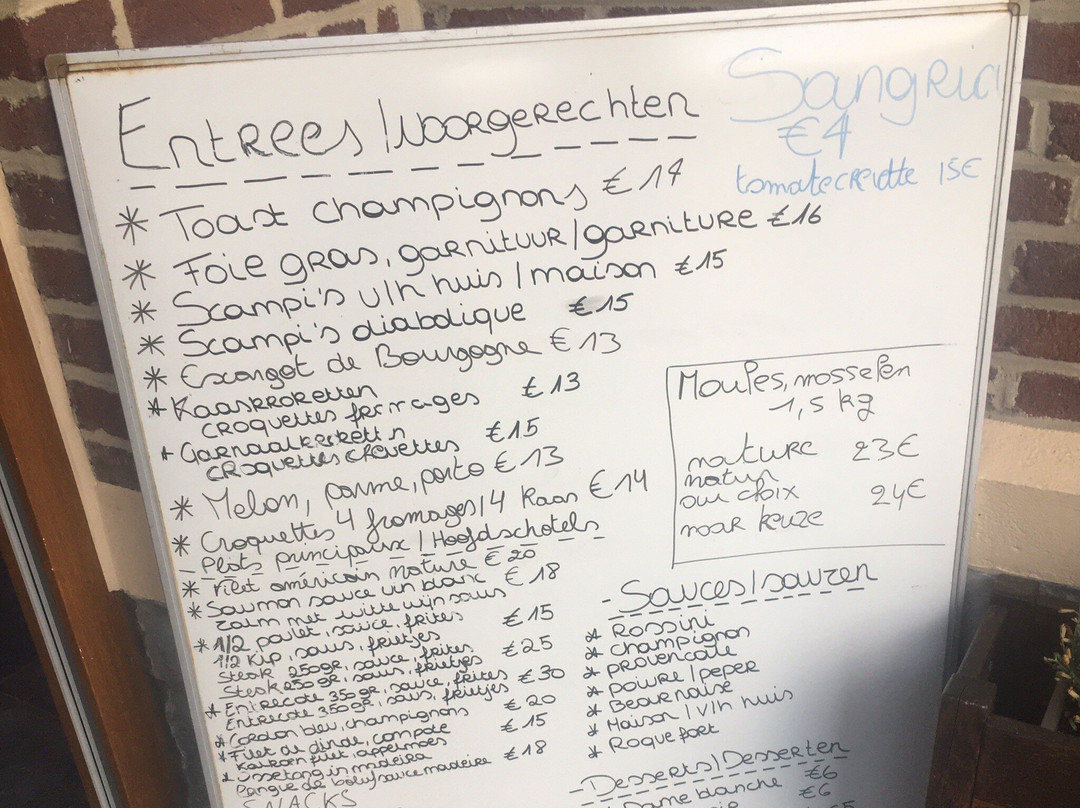 Entrees/Woorgerechten
* Toast champignons €14
* Foie gras, garnituur/garniture €16
* Scampi's v/h huis/maison €15
* Scampi's diabolique €15
* Escargot de Bourgogne €13
* Kaaskroketten
croquettes fromages €13
* Garnaalkroketten
croquettes crevettes €15
* Melon, parme, porto €13
* Croquettes 4 fromages/4 Kaas €14
- Plats principaux / Hoofdschotels
* Filet américain nature €20
* Saumon sauce vin blanc €18
zalm met witte wijn saus
* 1/2 poulet, sauce, frites €15
1/2 Kip, saus, frietjes
Steak 250gr, sauce, frites €25
Steak 250gr, saus, frietjes
* Entrecote 350gr, sauce, frites €30
Entrecote 350gr, saus, frietjes
* Cordon bleu, champignons €20
* Filet de dinde, compote €15
Kalkoen filet, appelmoes
* Ossetong in madeira €18
Langue de boeuf sauce madeire
SNACKS
Sangria
€4
tomate crevette 15€
Moules, mosselen
1,5 kg
nature 23€
natuur
au choix 24€
naar keuze
- Sauces/sauzen
* Rossini
* champignon
* provencale
* poivre/peper
* Bearnaise
* Maison/v/h huis
* Roquefort
- Desserts/Desserten
Dame blanche €6
€6